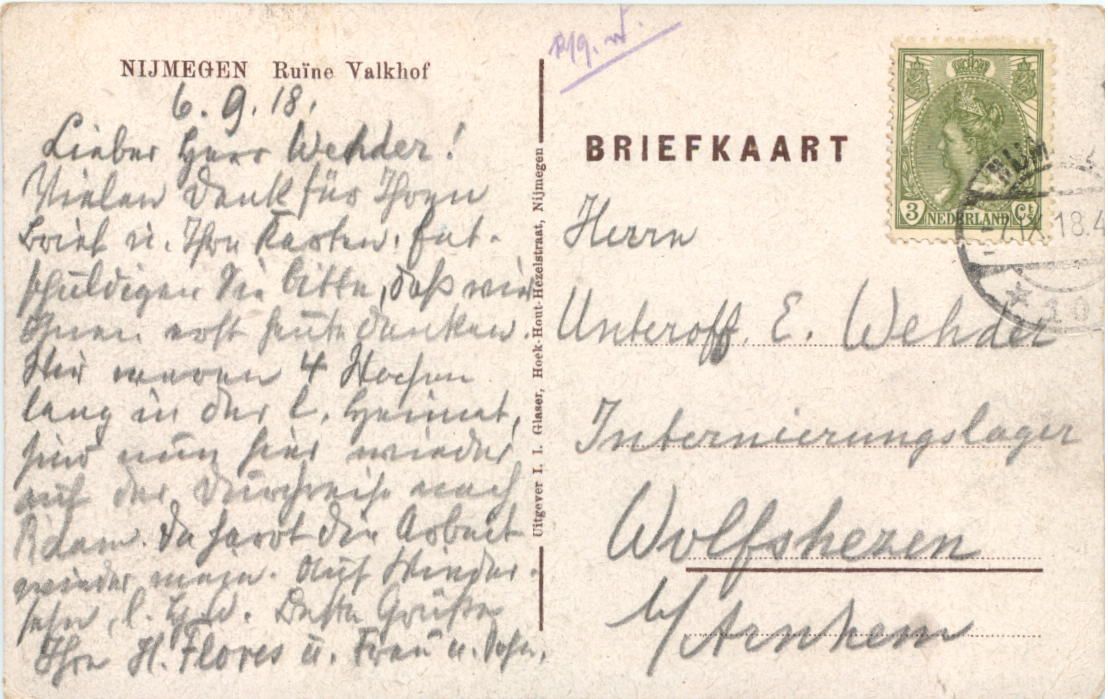 NIJMEGEN Ruïne Valkhof
6.9.18.
Lieber Herr Wehder!
Vielen Dank für Ihren
Brief u. Ihre Karten. Ent-
schuldigen Sie bitte, daß wir
Ihnen erst heute danken.
Wir waren 4 Wochen
lang in der l. Heimat,
sind nun hier wieder
auf der Durchreise nach
R'dam. Da harrt die Arbeit
wieder mein. Auf Wieder-
sehn, l. H. W. Beste Grüße
Ihre H. Flores u. Frau u. Sohn.
Uitgever I. I. Glaser, Hoek-Hout-Hezelstraat, Nijmegen
BRIEFKAART
3 NEDERLAND Ct
18.4
Herrn
Unteroff. E. Wehder
Internierungslager
Wolfshezen
b/Arnhem